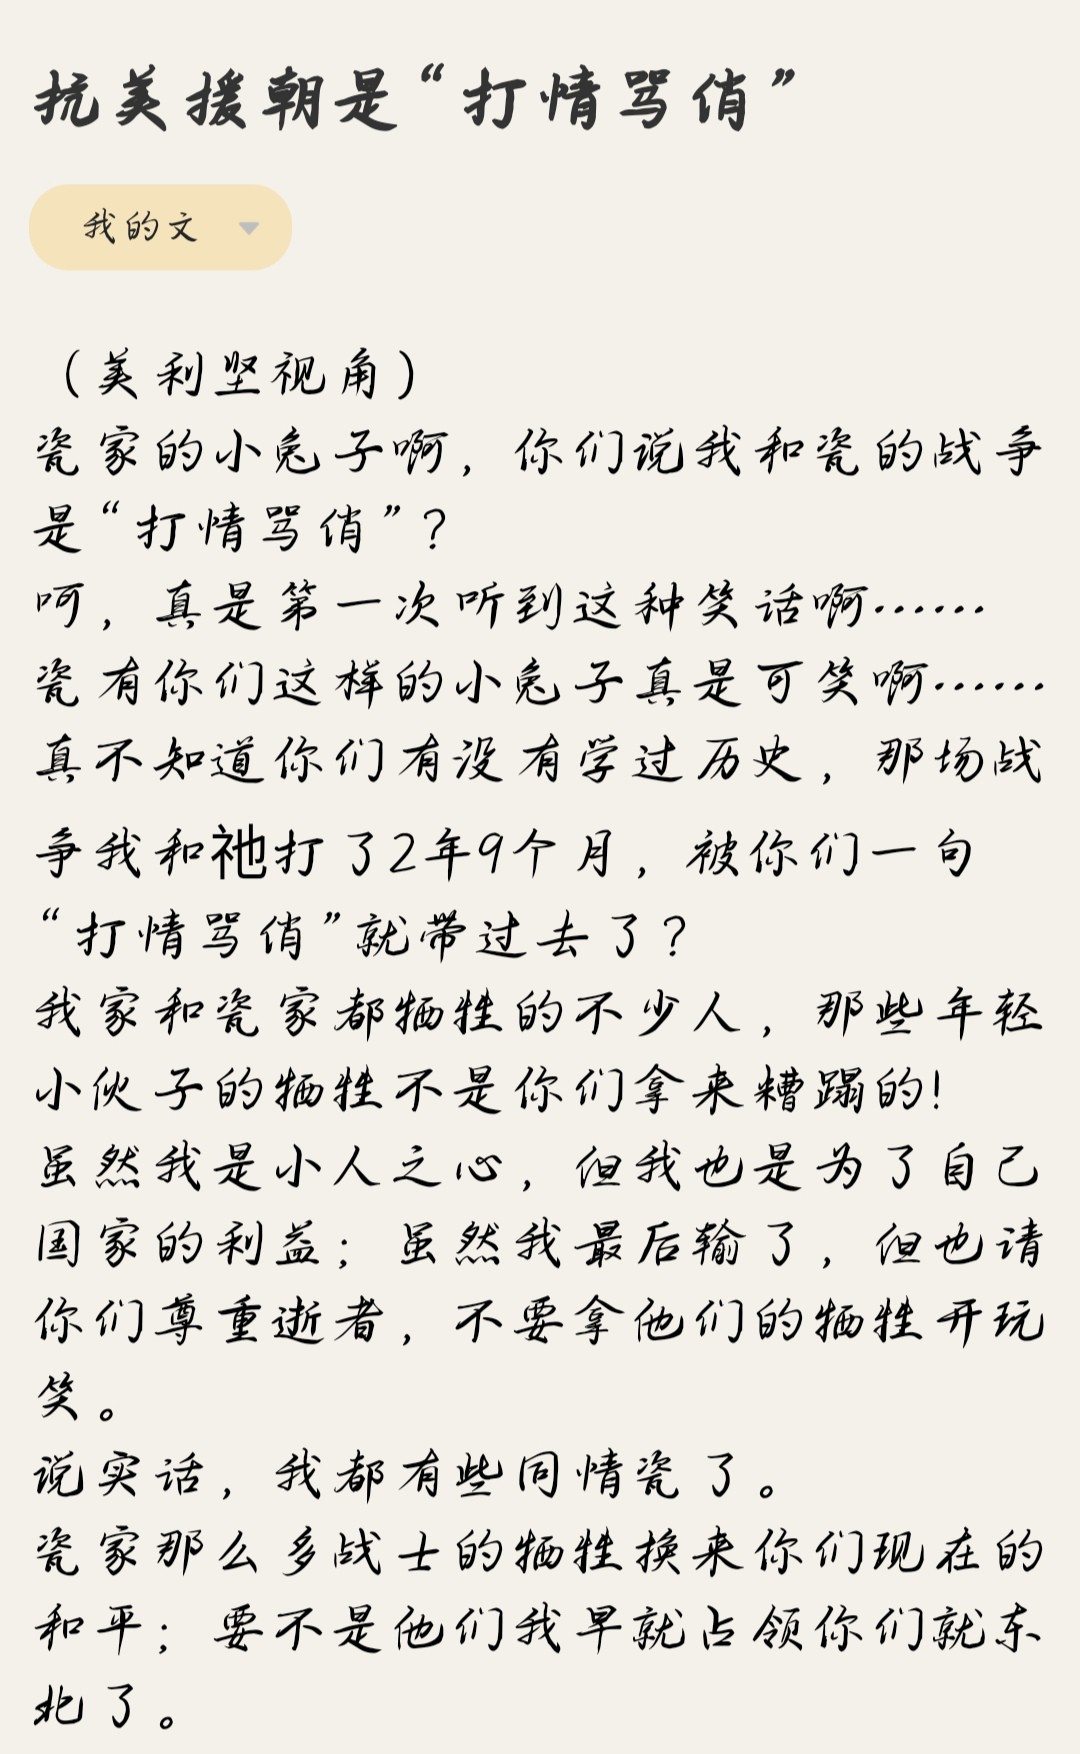 抗美援朝是“打情骂俏”
我的文
（美利坚视角）
瓷家的小兔子啊，你们说我和瓷的战争
是“打情骂俏”？
呵，真是第一次听到这种笑话啊……
瓷有你们这样的小兔子真是可笑啊……
真不知道你们有没有学过历史，那场战
争我和祂打了2年9个月，被你们一句
“打情骂俏”就带过去了？
我家和瓷家都牺牲的不少人，那些年轻
小伙子的牺牲不是你们拿来糟蹋的！
虽然我是小人之心，但我也是为了自己
国家的利益；虽然我最后输了，但也请
你们尊重逝者，不要拿他们的牺牲开玩
笑。
说实话，我都有些同情瓷了。
瓷家那么多战士的牺牲换来你们现在的
和平；要不是他们我早就占领你们就东
北了。